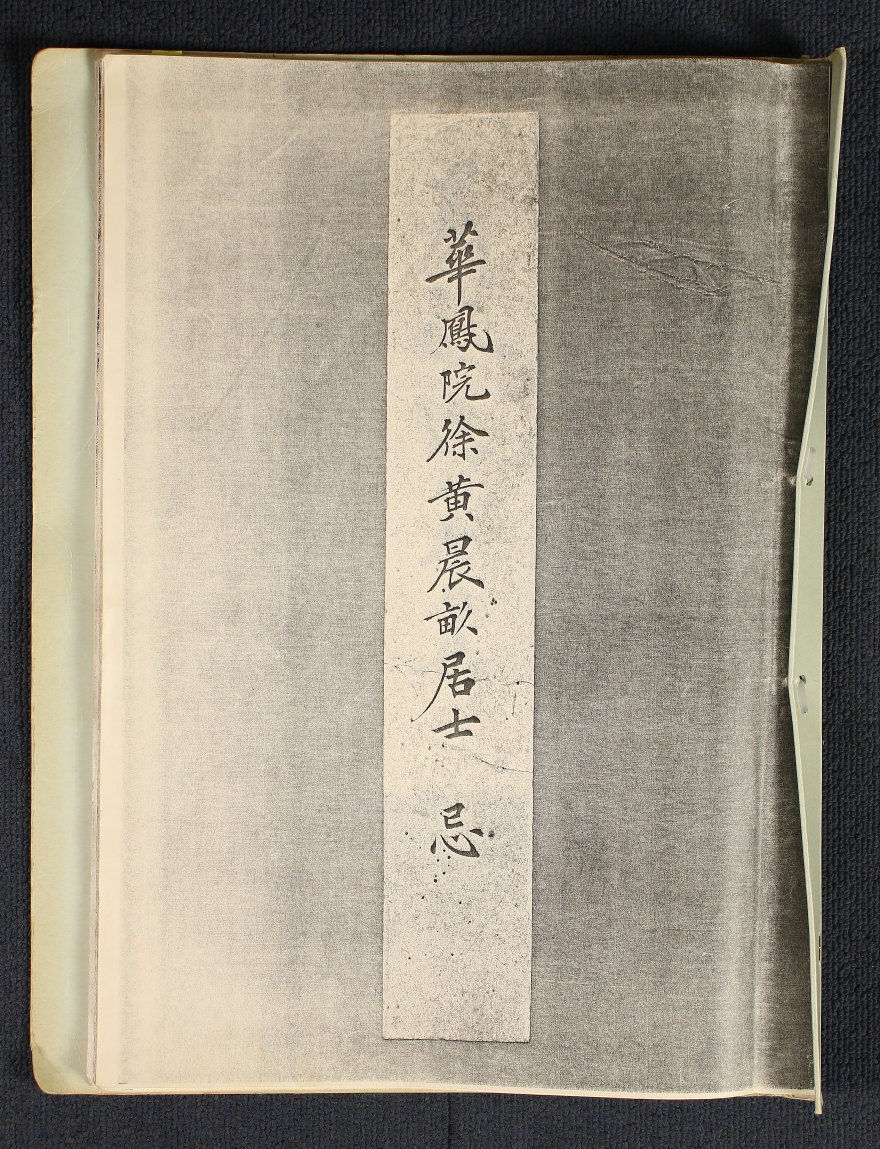 華鳳院徐黄晨畝居士 忌